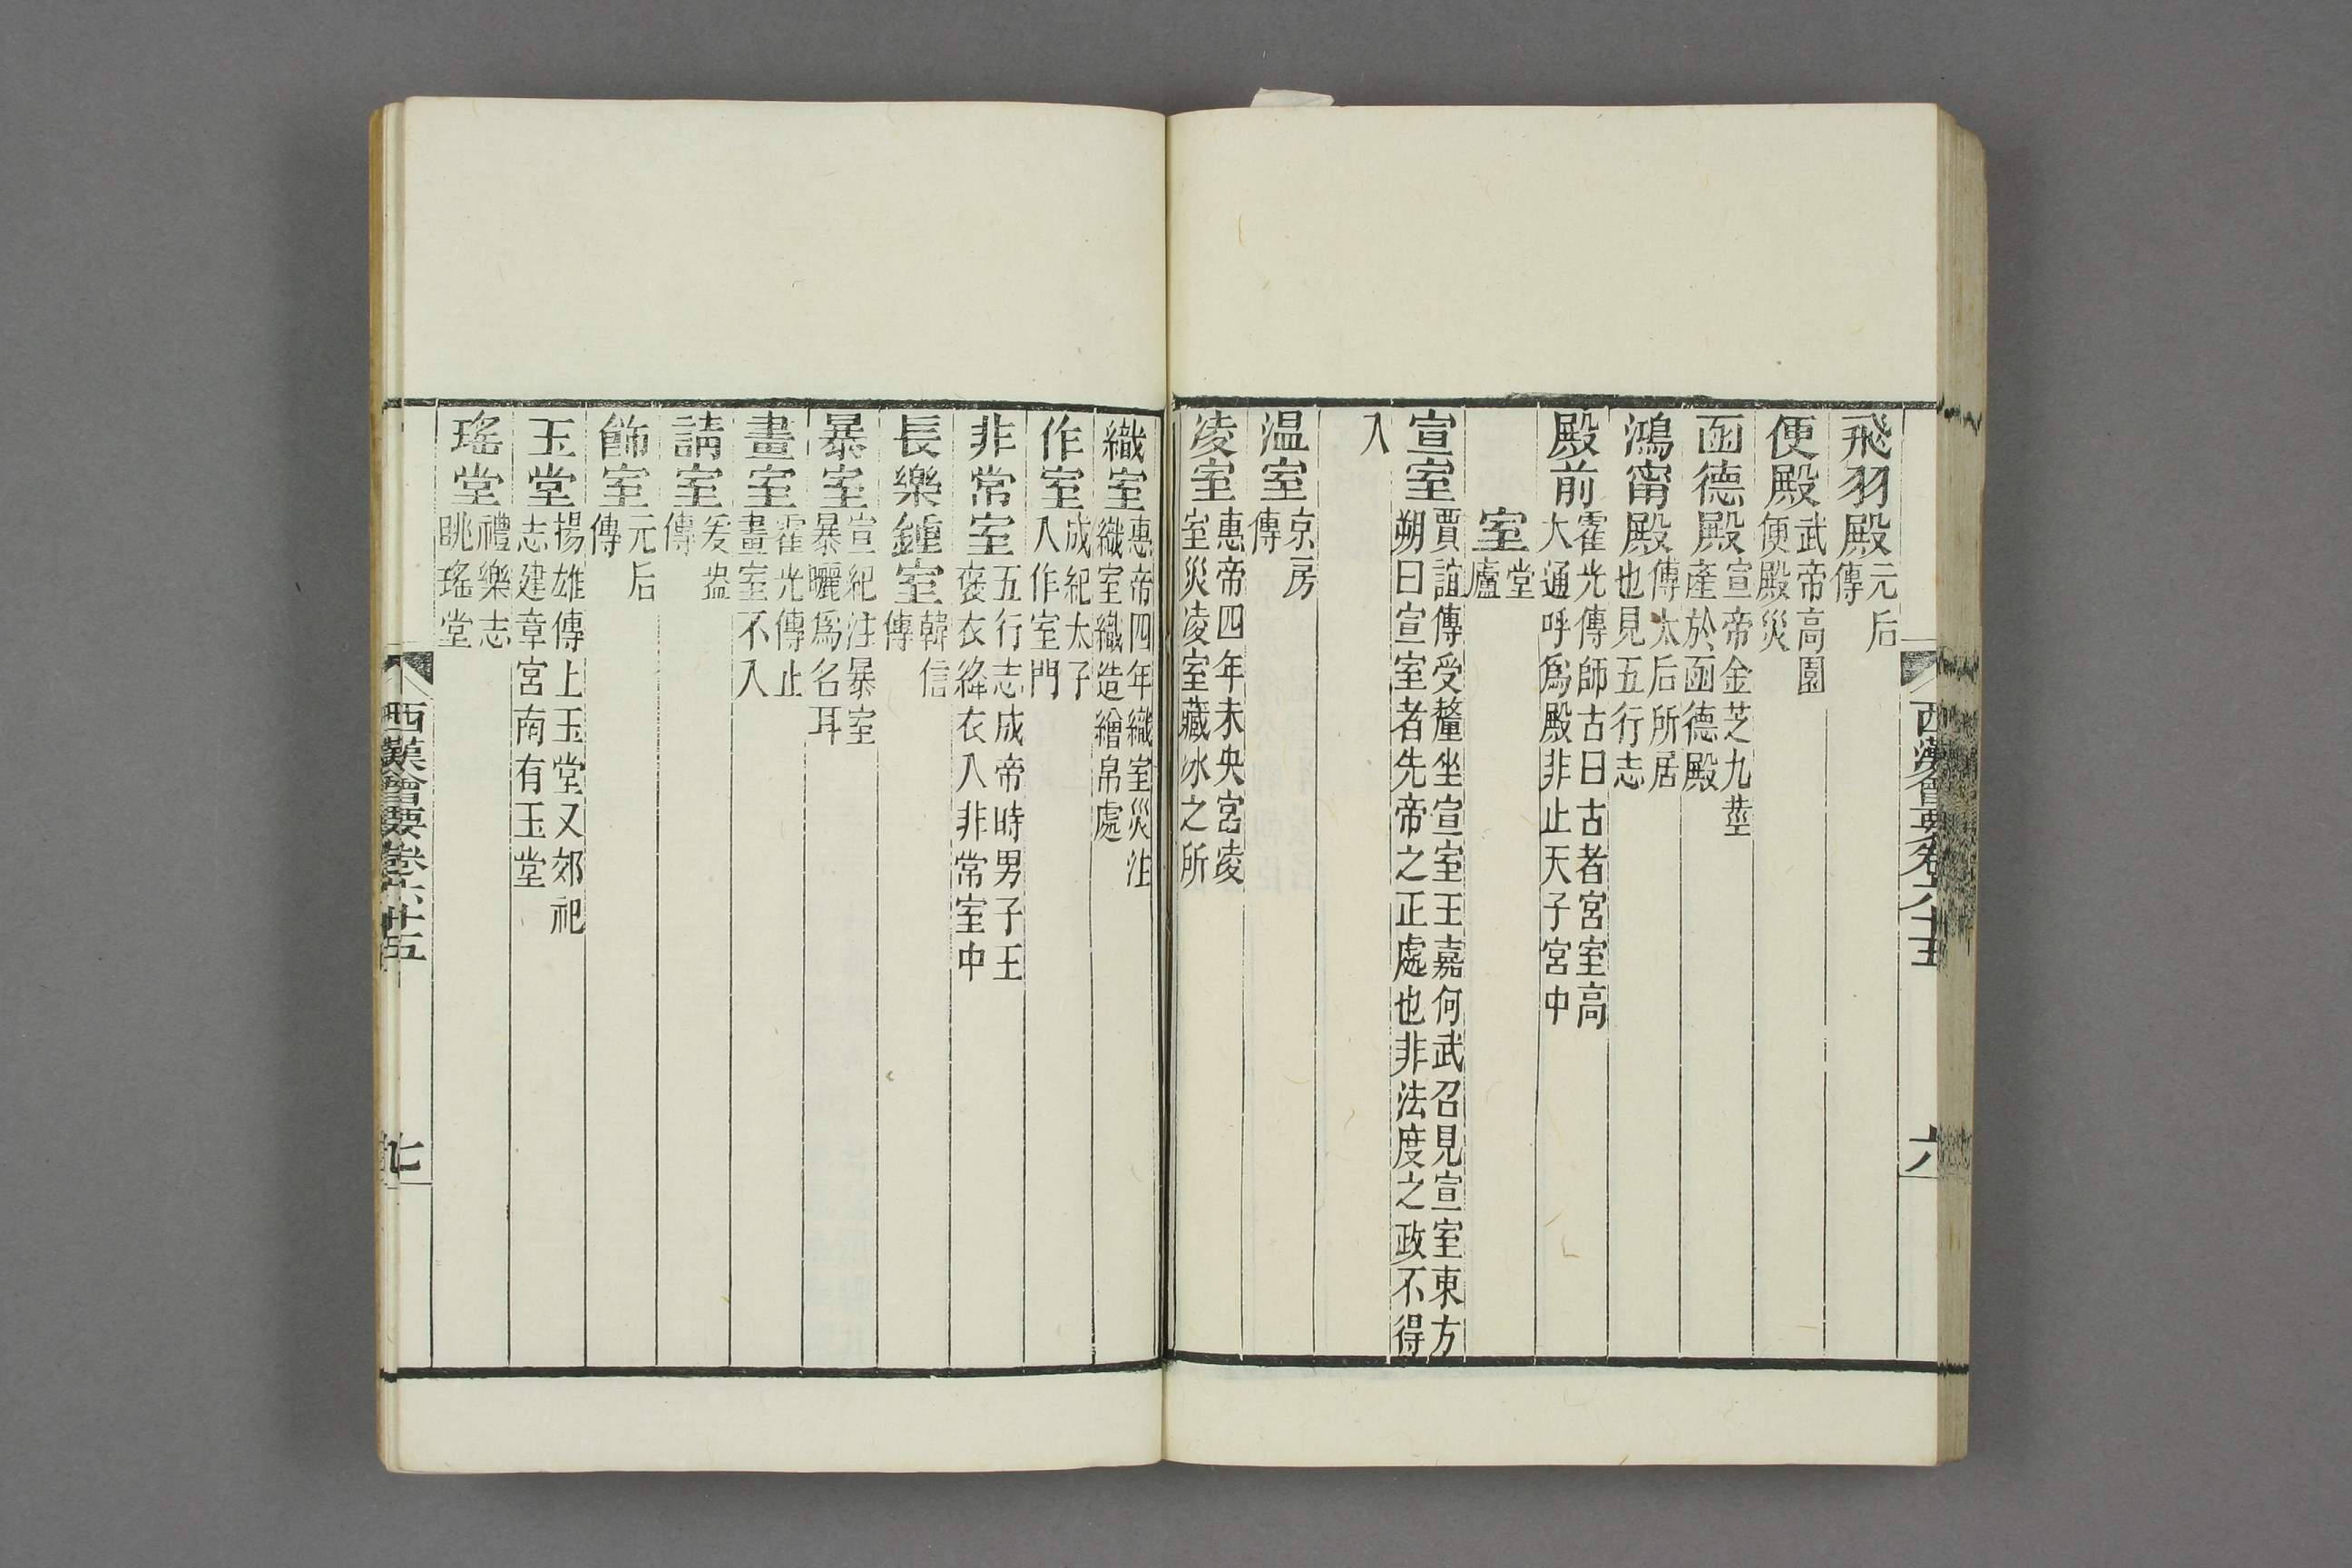 飛羽殿元后傳
便殿武帝高園便殿災
函德殿宣帝金芝九莖產於函德殿
鴻甯殿傅太后所居也見五行志
殿前霍光傳師古曰古者宮室高大通呼爲殿非止天子宮中
室堂廬
宣室賈誼傳受釐坐宣室王嘉何武召見宣室東方朔曰宣室者先帝之正處也非法度之政不得
入
温室京房傳
凌室惠帝四年未央宮凌室災凌室藏冰之所
西漢會要卷六十五
六
織室惠帝四年織室災注織室織造繒帛處
作室成紀太子入作室門
非常室五行志成帝時男子王褒衣絳衣入非常室中
長樂鍾室韓信傳
暴室宣紀注暴室暴曬爲名耳
畫室霍光傳止畫室不入
請室爰盎傳
飾室元后傳
玉堂揚雄傳上玉堂又郊祀志建章宮南有玉堂
瑤堂禮樂志眺瑤堂
西漢會要卷六十五
七